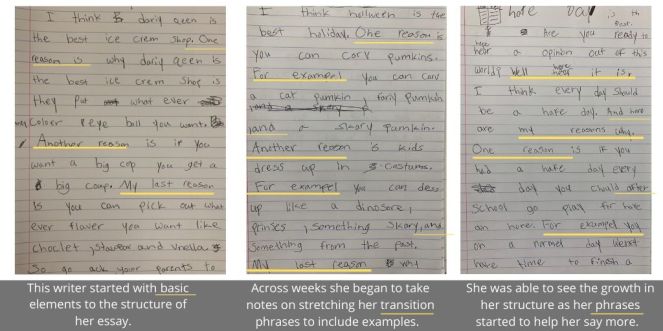 I think B dariy qeen is
the best ice crem shop. One
reason is why dariy qeen is
the best ice crem shop is
they put what ever
Coloer Peye ball you want.
Another reason is if you
want a big cop you get a
big coup. My last reason
is you can pick out what
ever flaver you want like
choclet, and vnella
So go ack your parents to
I think holloween is the
best holiday. One reason is
you can carv pumkins.
For exampel you can carv
a cat pumkin, fariy pumkin
and a skary pumkin.
Another reason is kids
dress up in costums.
For exampel you can dess
up like a dinosore,
prinses, something skary, and
something from the past.
My last reason is
hafe Day is the
Best.
Are you ready to
hear a opinon out of this
world? Well here it is,
I think every day should
be a hafe day. And here
are my reasons why.
One reason is if you
had a hafe day every
day you chould after
school go play for hafe
an houre. For exampel you
on a normel day
have time to finsh a
This writer started with basic
elements to the structure of
her essay.
Across weeks she began to take
notes on stretching her transition
phrases to include examples.
She was able to see the growth in
her structure as her phrases
started to help her say more.